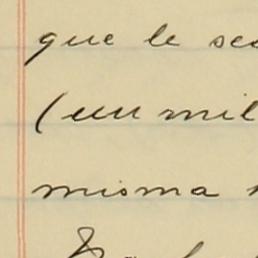 que le ses
(un mil
misma